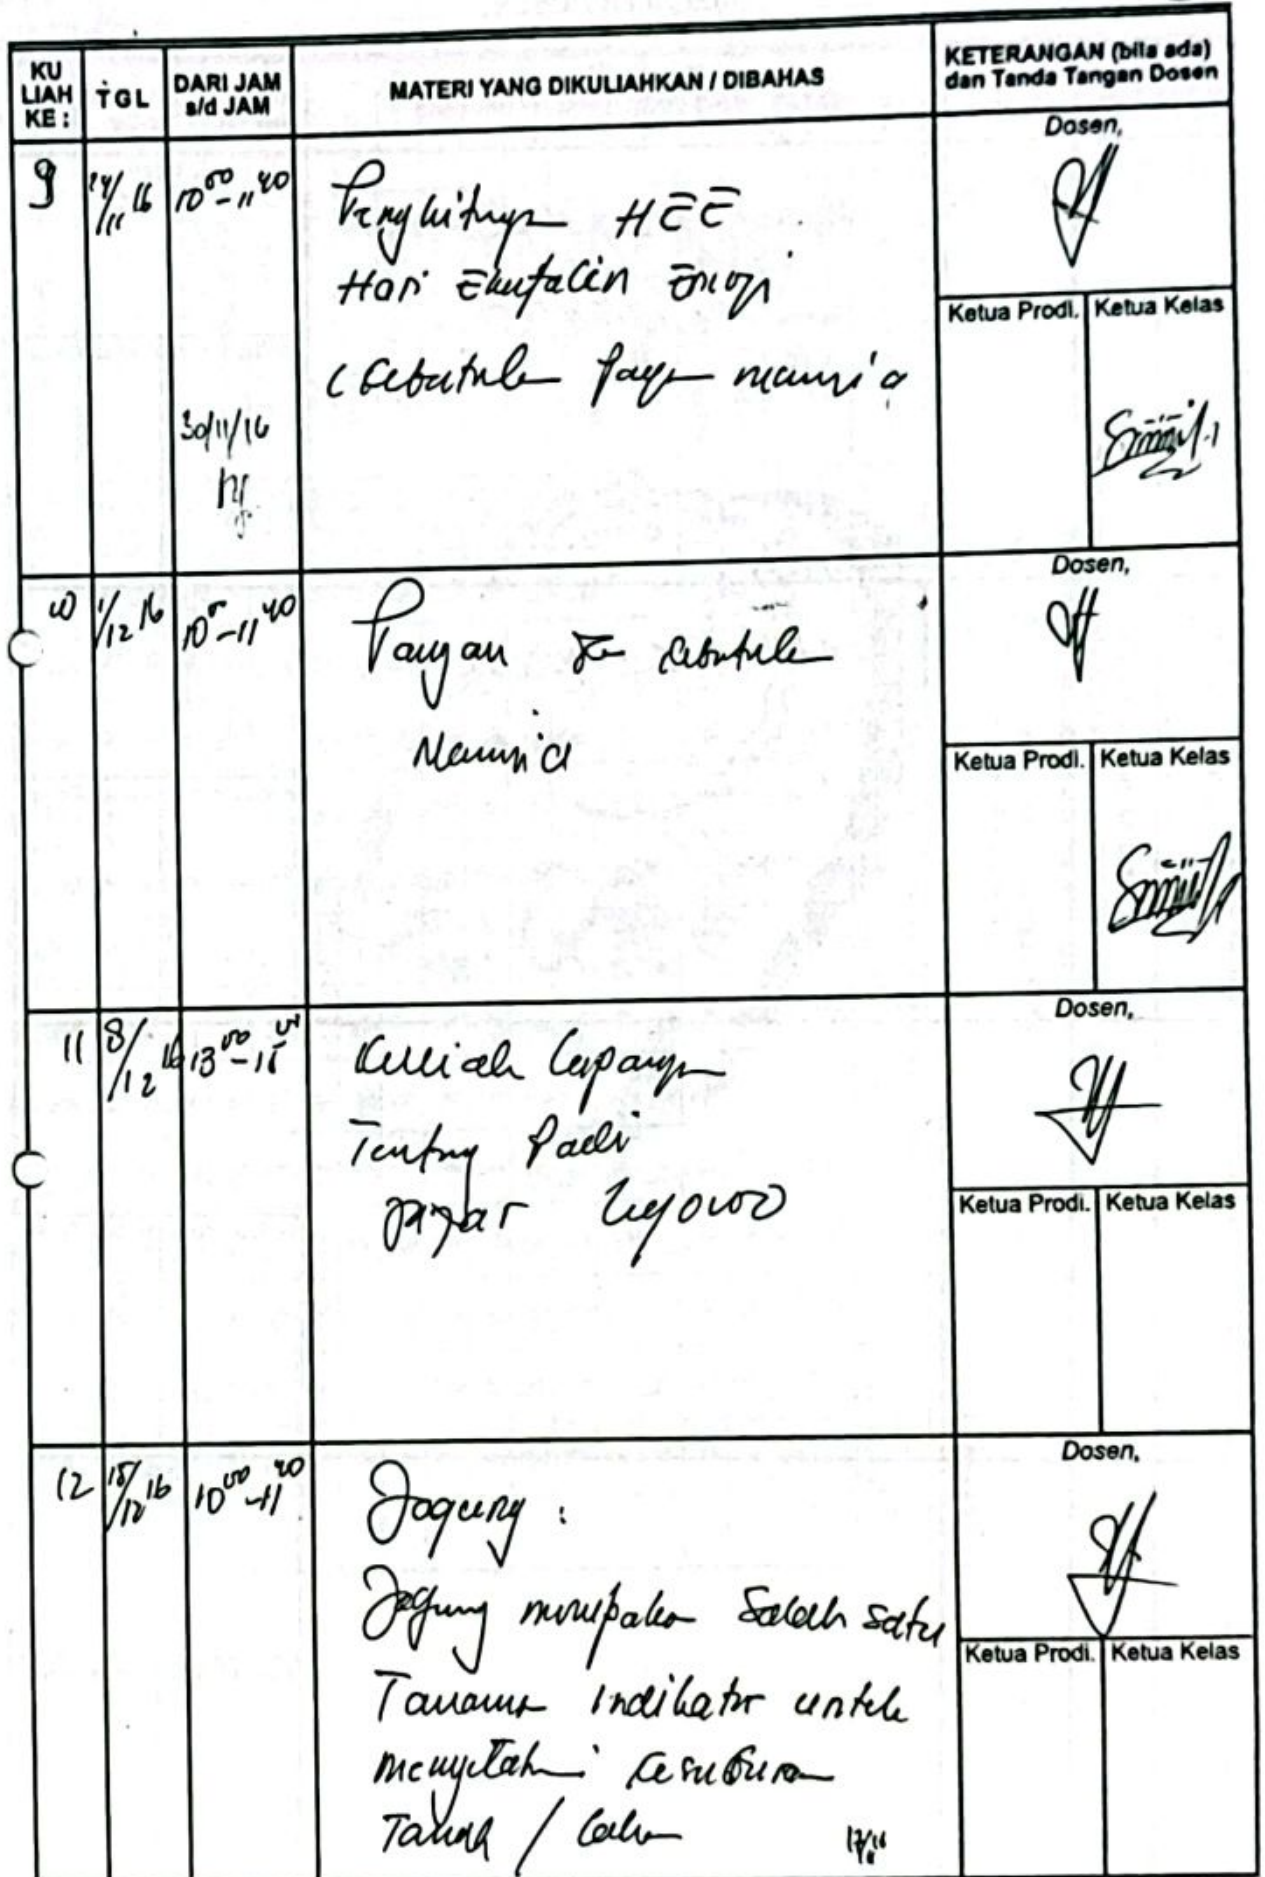 KU LIAH KE :
TGL
DARI JAM s/d JAM
MATERI YANG DIKULIAHKAN / DIBAHAS
KETERANGAN (bila ada) dan Tanda Tangan Dosen
9
24/11 16
10⁰⁰-11⁴⁰
Penghitungan HEE
Hari Ekuivalen Energi
(Kebutuhan Pangan manusia
30/11/16
Dosen,
Ketua Prodi.
Ketua Kelas
10
1/12 16
10⁰⁰-11⁴⁰
Pangan dan kebutuhan
Manusia
Dosen,
Ketua Prodi.
Ketua Kelas
11
8/12 16
13⁰⁰
Kuliah Lapangan
Tentang Padi
jajar legowo
Dosen,
Ketua Prodi.
Ketua Kelas
12
15/12 16
10⁰⁰-11⁴⁰
Jagung :
Jagung merupakan Salah satu
Tanaman Indikator untuk
mengetahui kesuburan
Tanah / lahan
Dosen,
Ketua Prodi.
Ketua Kelas